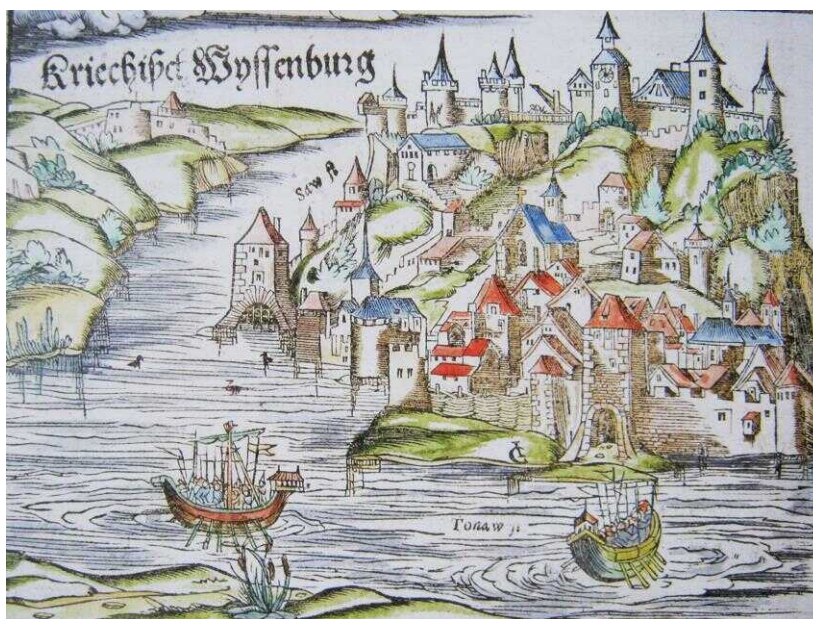 Kriechisch Wyssenburg
Saw fl
Tonaw fl